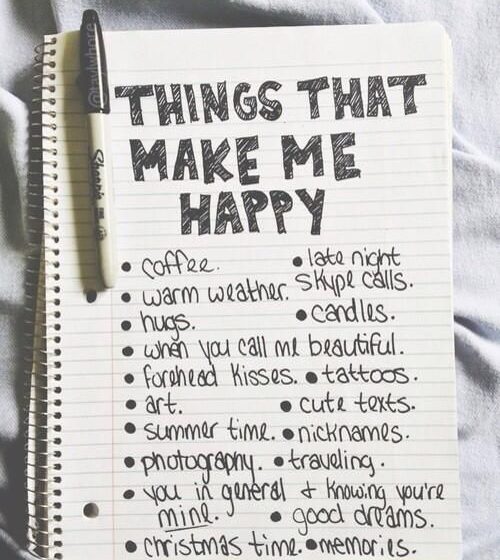 THINGS THAT
MAKE ME
HAPPY
• coffee. • late night
skype calls.
• warm weather.
• hugs. • candles.
• when you call me beautiful.
• forehead kisses. • tattoos.
• art. • cute texts.
• summer time. • nicknames.
• photography. • traveling.
• you in general & knowing you're
mine. • good dreams.
• christmas time. • memories.
Sharpie